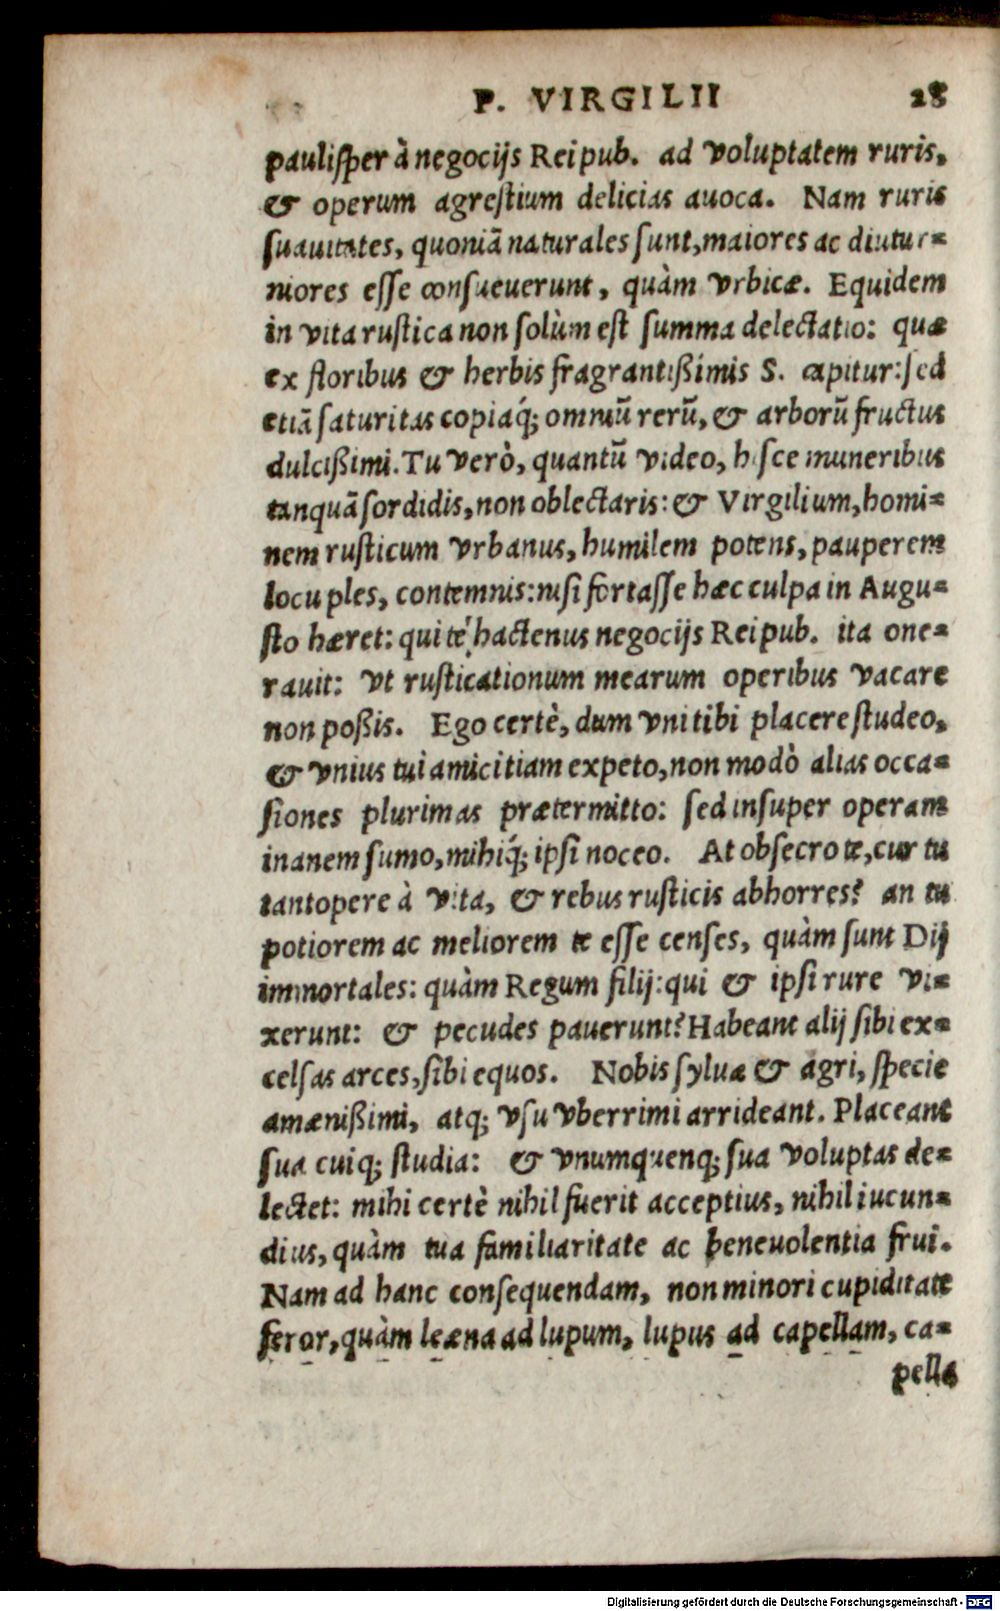 P. VIRGILII 28
paulisper à negocijs Reipub. ad voluptatem ruris,
& operum agrestium delicias auoca. Nam ruris
suauitates, quoniã naturales sunt, maiores ac diutur=
niores esse consueuerunt, quàm vrbicæ. Equidem
in vita rustica non solùm est summa delectatio: quæ
ex floribus & herbis fragrantißimis S. capitur: sed
etiã saturitas copiaq́; omniũ rerũ, & arborũ fructus
dulcißimi. Tu verò, quantũ video, hisce muneribus
tanquã sordidis, non oblectaris: & Virgilium, homi=
nem rusticum vrbanus, humilem potens, pauperem
locuples, contemnis: nisi fortasse hæc culpa in Augu=
sto hæret: qui te hactenus negocijs Reipub. ita one=
rauit: vt rusticationum mearum operibus vacare
non poßis. Ego certè, dum vni tibi placere studeo,
& vnius tui amicitiam expeto, non modò alias occa=
siones plurimas prætermitto: sed insuper operam
inanem sumo, mihiq́; ipsi noceo. At obsecro te, cur tu
tantopere à vita, & rebus rusticis abhorres? an tu
potiorem ac meliorem te esse censes, quàm sunt Dij
immortales: quàm Regum filij: qui & ipsi rure vi=
xerunt: & pecudes pauerunt? Habeant alij sibi ex=
celsas arces, sibi equos. Nobis syluæ & agri, specie
amænißimi, atq; vsu vberrimi arrideant. Placeant
sua cuiq; studia: & vnumquenq; sua voluptas de=
lectet: mihi certè nihil fuerit acceptius, nihil iucun=
dius, quàm tua familiaritate ac beneuolentia frui.
Nam ad hanc consequendam, non minori cupiditate
feror, quàm leæna ad lupum, lupus ad capellam, ca=
pella
Digitalisierung gefördert durch die Deutsche Forschungsgemeinschaft - DFG